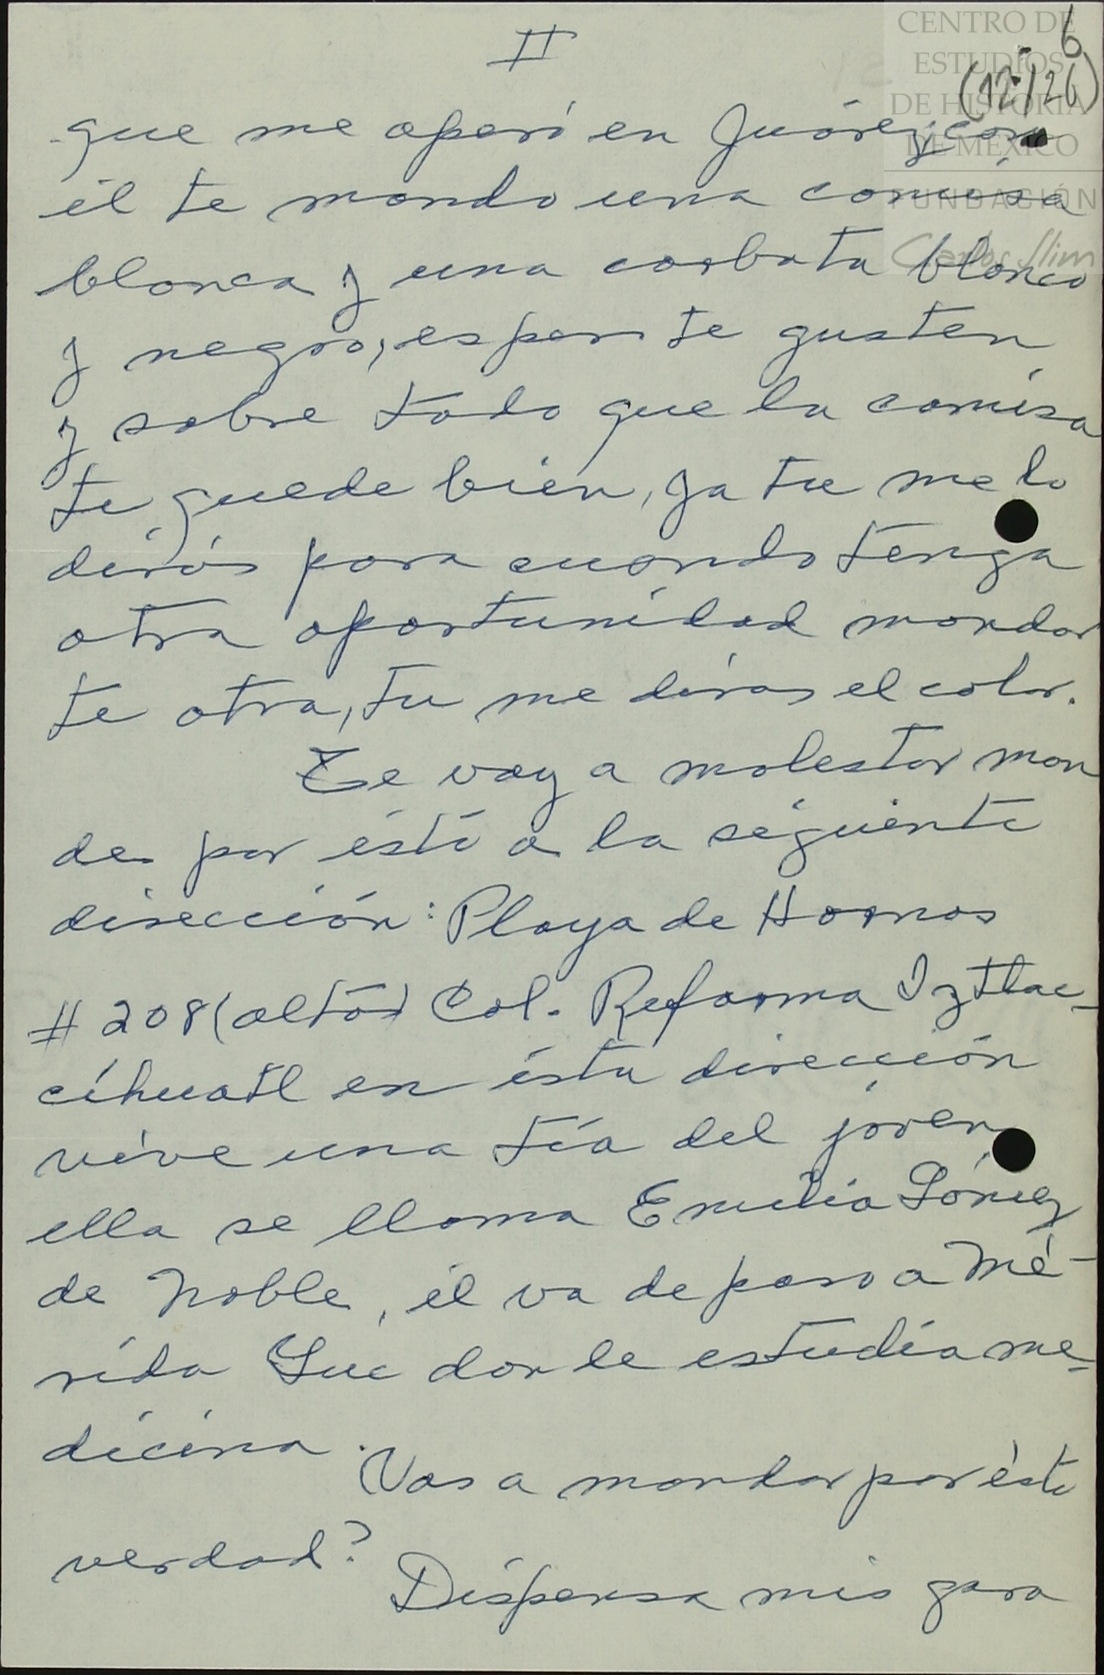 II
6
(12-126)
CENTRO DE
ESTUDIOS
DE HISTORIA
DE MÉXICO
FUNDACIÓN
Carlos Slim
que me operó en Juárez, con
él te mando una camisa
blanca y una corbata blanco
y negro, espero te gusten
y sobre todo que la camisa
te quede bien, ya tu me lo
dirás para cuando tenga
otra oportunidad mandar
te otra, tu me diras el color.
Te voy a molestar man
des por ésto a la siguiente
dirección: Playa de Hornos
# 208 (altos) Col. Reforma Iztlac-
cíhuatl en ésta dirección
vive una tía del jóven
ella se llama Emilia Gómez
de Noble, él va de paso a Mé-
rida Yuc donde estudia me-
dicina.
Vas a mandar por ésto
verdad?
Dispensa mis gara